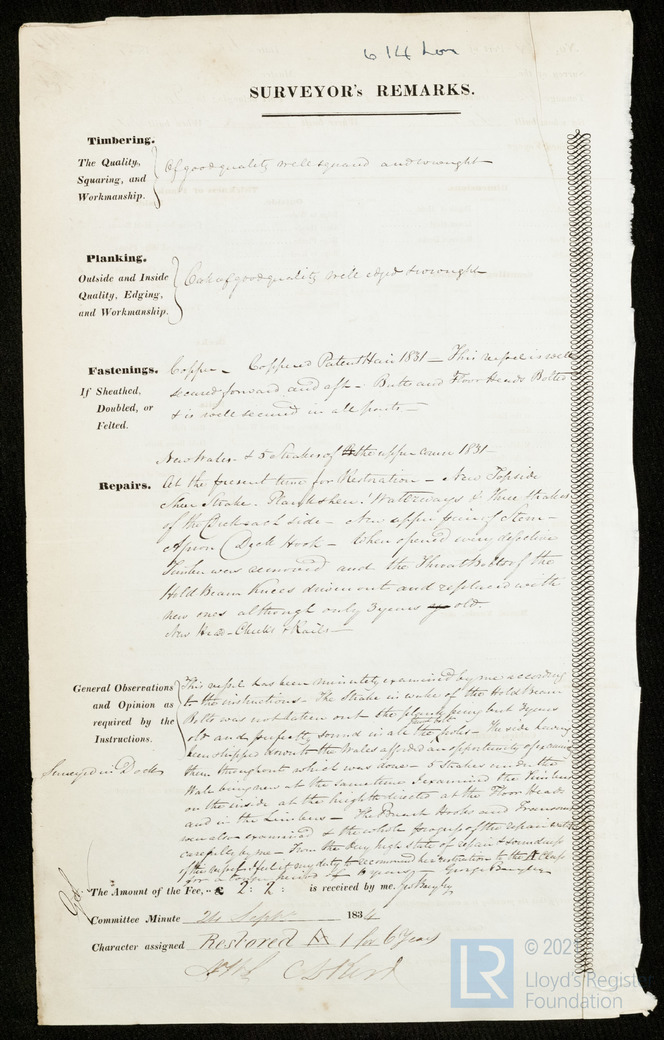 614 Lon
SURVEYOR's REMARKS.
Timbering.
The Quality,
Squaring, and
Workmanship.
Of good quality well squared and wrought
Planking.
Outside and Inside
Quality, Edging,
and Workmanship.
Oak of good quality well edged & wrought
Fastenings.
If Sheathed,
Doubled, or
Felted.
Copper - Coppered Patent Hair 1831 - This vessel is well
secured forward and aft - Butts and Floor Heads Bolted
& is well secured in all parts -
New Wales & 5 Strakes of the upper course 1831 -
Repairs.
At the present time for Restoration - New Topside
Sheer Strake. Planksheer. Waterways & three strakes
of the Deck each side - New upper piece of Stem -
Apron Deck Hook - When opened every defective
Timber was removed and the Throat Bolts of the
Hold Beam Knees driven out and replaced with
new ones although only 3 years old.
New Head - Cheeks & Rails -
General Observations
and Opinion as
required by the
Instructions.
This vessel has been minutely examined by me according
to the instructions - The Strake in wake of the Hold Beam
Bolts was not taken out the plank being but 3 years
old and perfectly sound in all the bolt holes - The side having
been stripped down to the Wales afforded an opportunity of examg
them throughout which was done - 5 strakes under the
Wale being new at the same time I examined the Timbers
on the inside at the heights directed at the Floor Heads
and in the Limbers - The Breast Hooks and Transoms
were also examined & the whole progress of the repair
carefully by me - From the very high state of repair & soundness
of the vessel I feel it my duty to recommend her restoration to the A Class
for a term period of 6 years - George Bayley
Surveyed in Dock
The Amount of the Fee, £ 2: 2: is received by me, Geo Bayley
Committee Minute 24 Septr 1834
Character assigned Restored A 1 for 6 Years
© 202
LR
Lloyd's Register
Foundation